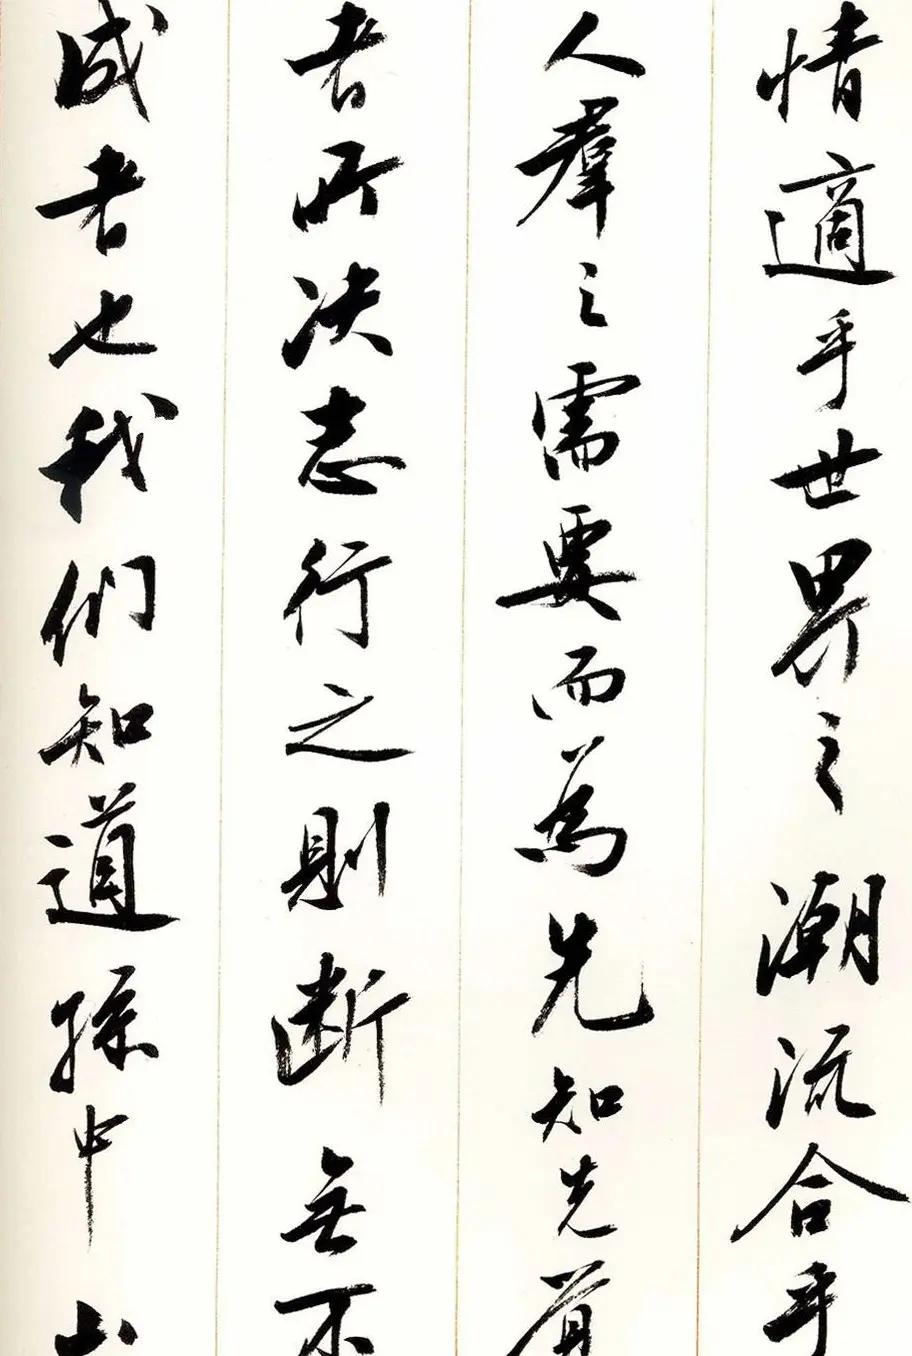 情適乎世界之潮流合乎
人羣之需要而為先知先覺
者所决志行之則断無不
成者也我们知道孫中山